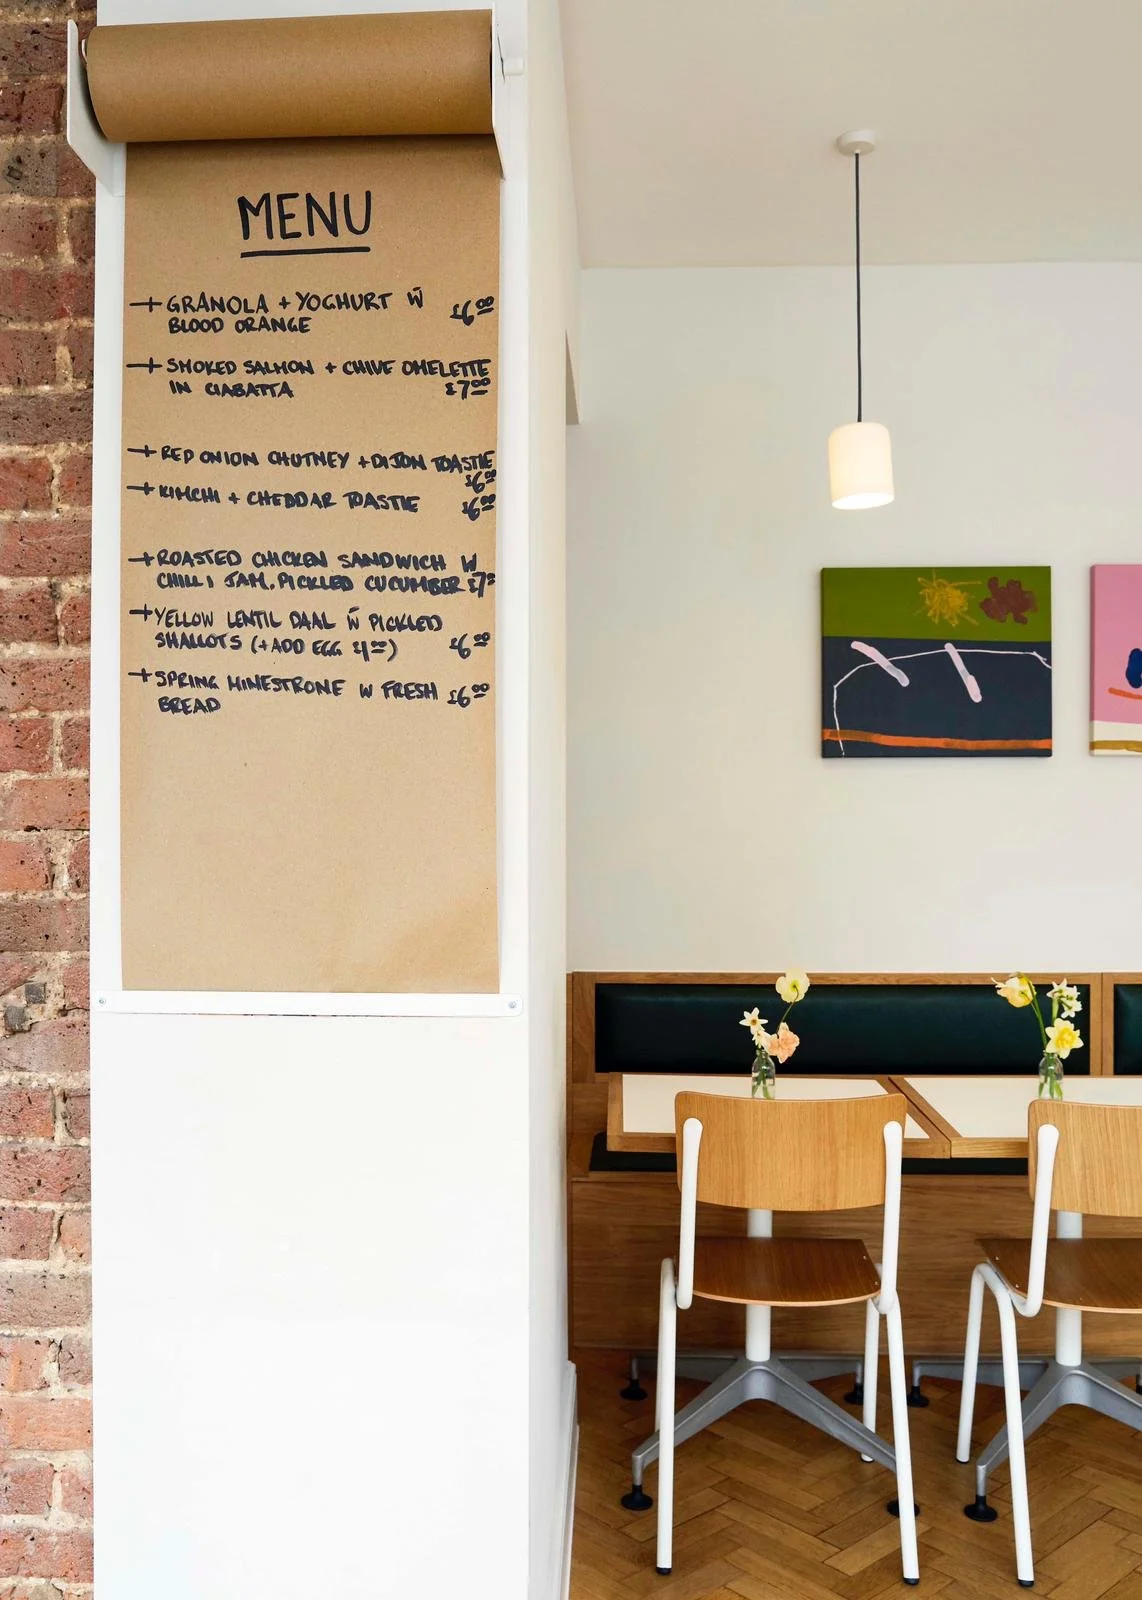 MENU
GRANOLA + YOGHURT W̄ £6.00
BLOOD ORANGE
SMOKED SALMON + CHIVE OMELETTE
IN CIABATTA £7.00
RED ONION CHUTNEY + DIJON TOASTIE
£6.00
KIMCHI + CHEDDAR TOASTIE £6.00
ROASTED CHICKEN SANDWICH W
CHILLI JAM, PICKLED CUCUMBER £7.00
YELLOW LENTIL DAAL W̄ PICKLED
SHALLOTS (+ADD EGG £1.00) £6.00
SPRING MINESTRONE W FRESH £6.00
BREAD